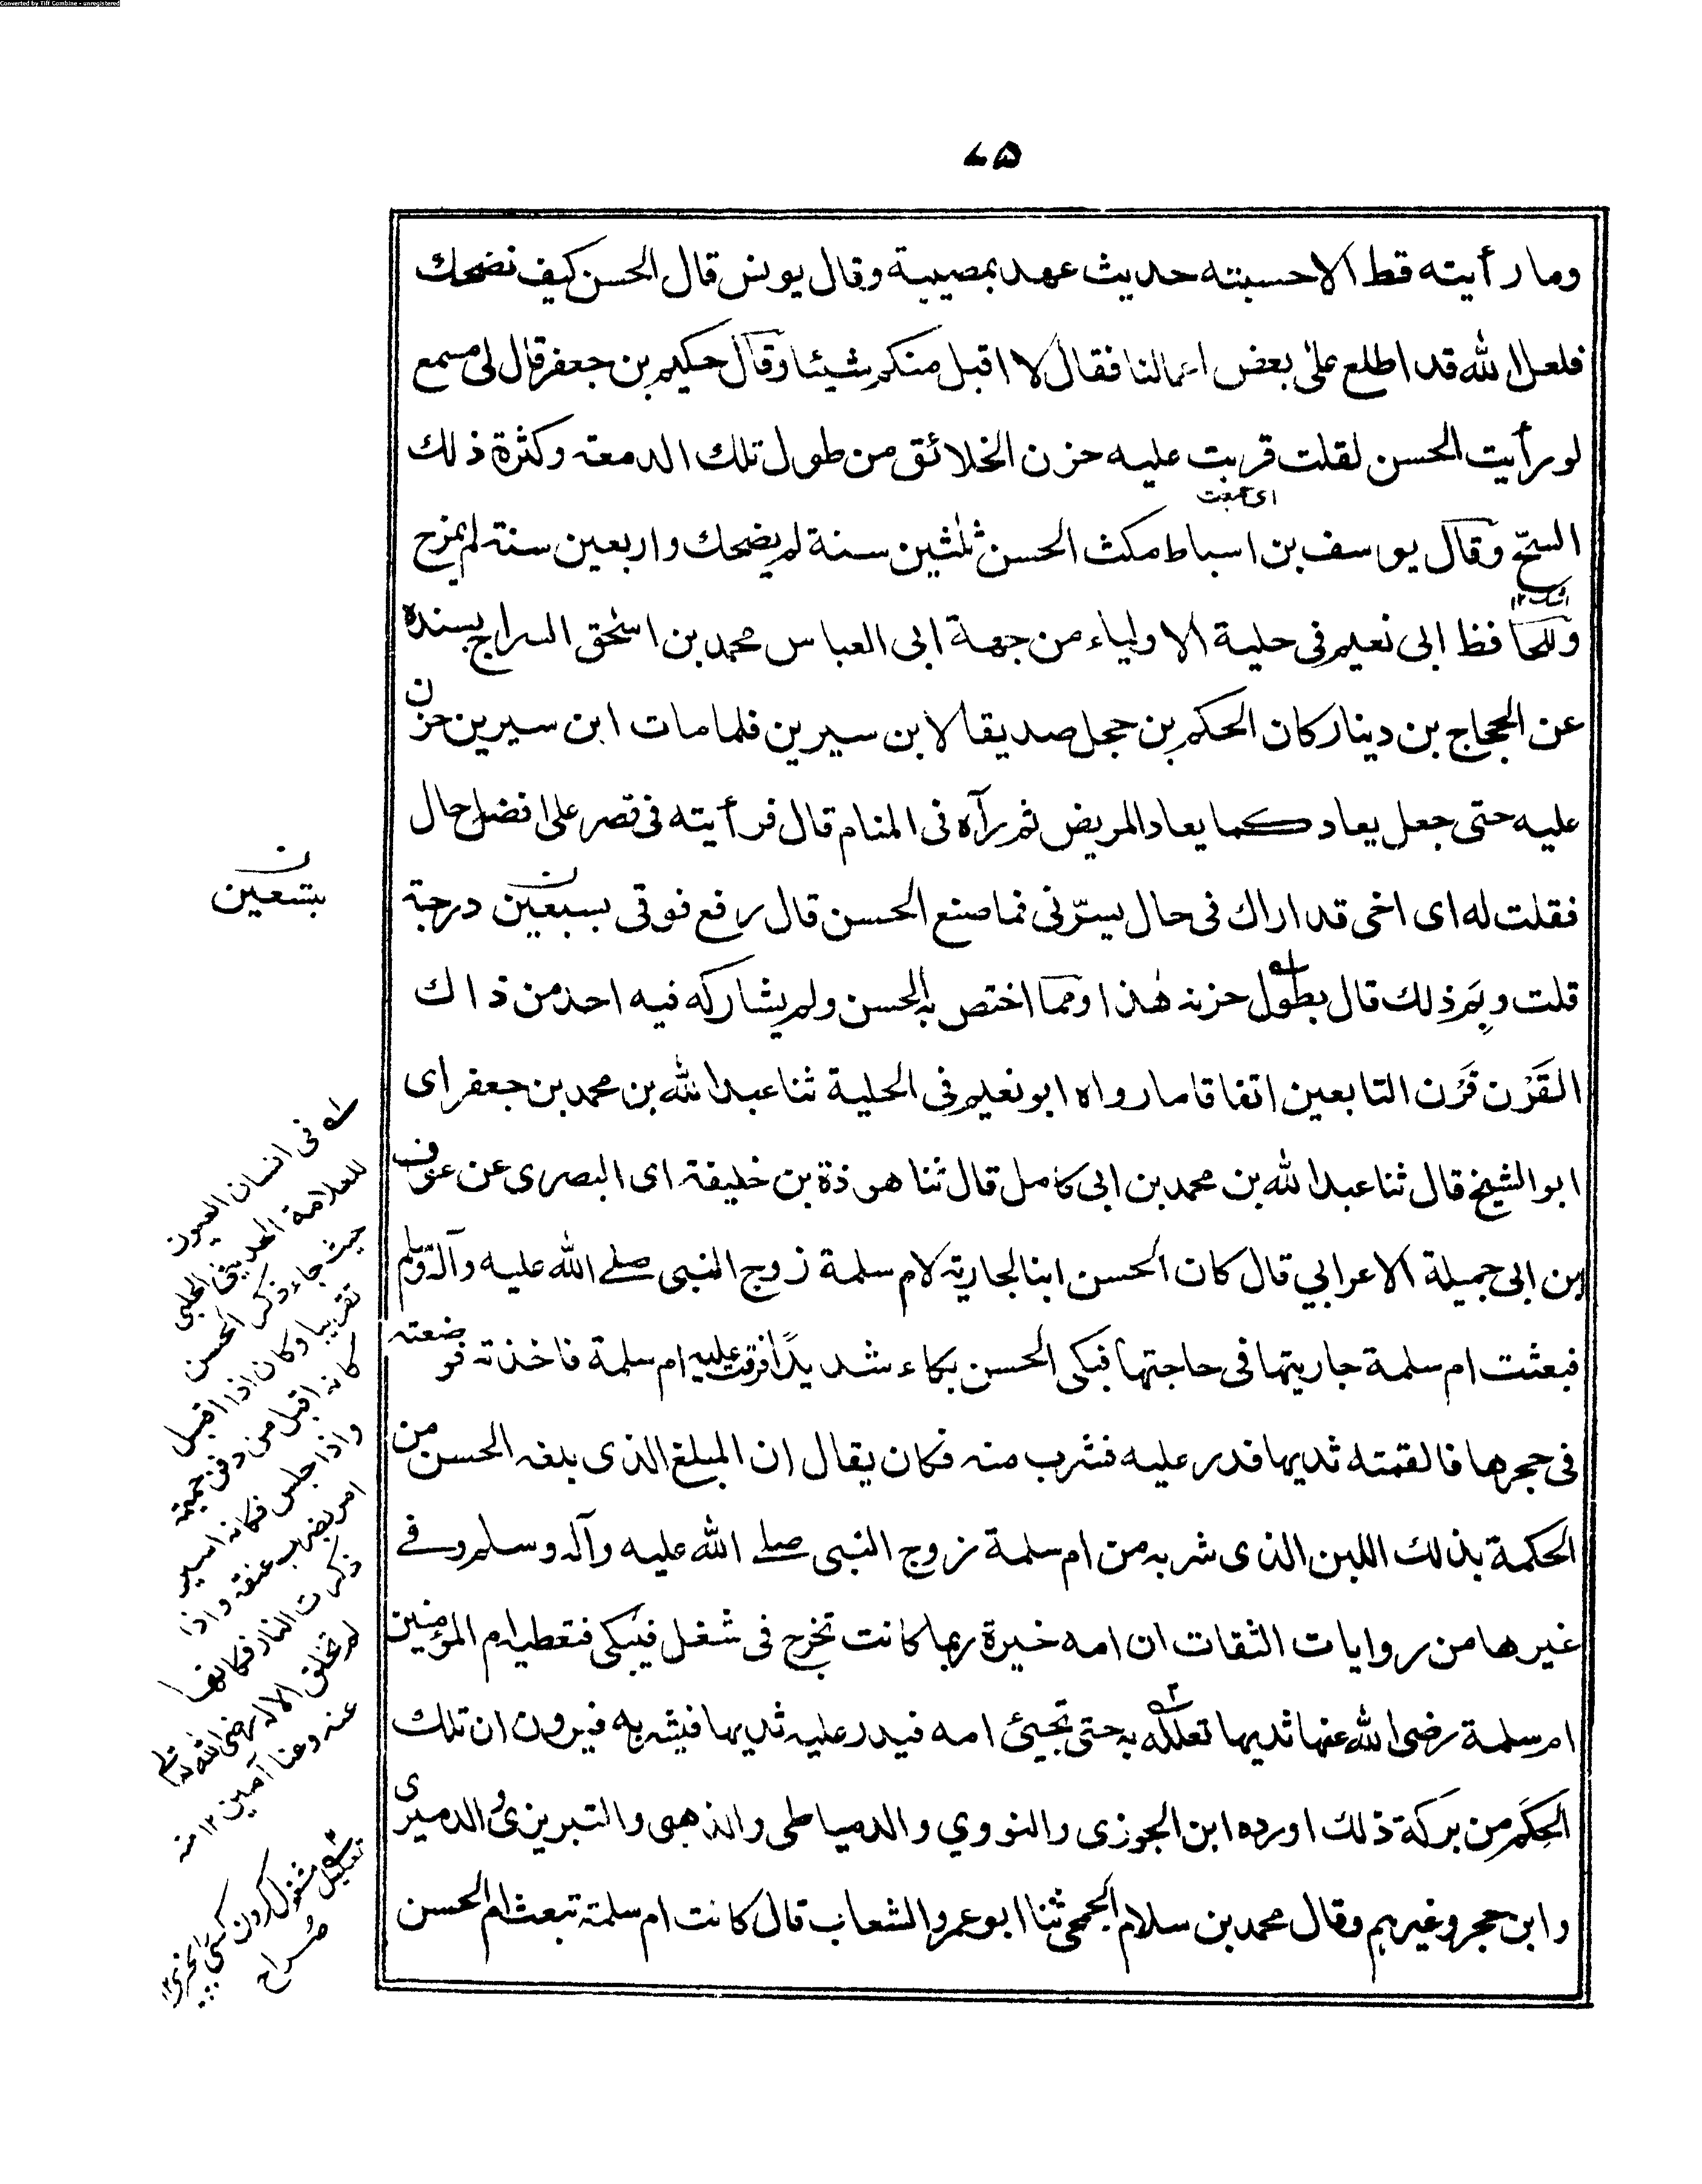 Converted by Tiff Combine - unregistered
٤٥
وما رأيته قط الا حسبته حديث عهد بمصيبة وقال يونس قال الحسن كيف نضحك
فلعل الله قد اطلع على بعض اعمالنا فقال لا اقبل منكم شيئا وقال حكيم بن جعفر قال لى مسمع
لو رأيت الحسن لقلت قربت عليه حزن الخلائق من طول تلك الدمعة وكثرة ذلك
السحّ وقال يوسف بن اسباط مكث الحسن ثلٰثين سنة لم يضحك واربعين سنة لم يمزح
وللحافظ ابى نعيم فى حلية الاولياء من جهة ابى العباس محمد بن اسحٰق السراج بسنده
عن الحجاج بن دينار كان الحكم بن حجل صديقا لابن سيرين فلما مات ابن سيرين حزن
عليه حتى جعل يعاد كما يعاد المريض ثم رآه فى المنام قال فرأيته فى قصر على افضل حال
فقلت له اى اخى قد اراك فى حال يسرّنى فما صنع الحسن قال رفع فوقى بسبعين درجة
قلت وبِمَ ذلك قال بطول حزنه هٰذا ومما اختص به الحسن ولم يشاركه فيه احد من ذاك
القَرْن قَرْن التابعين اتفاقا ما رواه ابو نعيم فى الحلية ثنا عبد الله بن محمد بن جعفر اى
ابو الشيخ قال ثنا عبد الله بن محمد بن ابى كامل قال ثنا هوذة بن خليفة اى البصرى عن عوف
بن ابى جميلة الاعرابي قال كان الحسن ابنا لجارية لام سلمة زوج النبى صلى الله عليه وآله وسلم
فبعثت ام سلمة جاريتها فى حاجتها فبكى الحسن بكاء شديدًا فرقت عليه ام سلمة فاخذته فوضعته
فى حجرها فالقمته ثديها فدر عليه فشرب منه فكان يقال ان المبلغ الذى بلغه الحسن من
الحكمة بذلك اللبن الذى شربه من ام سلمة زوج النبى صلى الله عليه وآله وسلم وفى
غيرها من روايات الثقات ان امه خيرة ربما كانت تخرج فى شغل فيبكى فتعطيه ام المؤمنين
ام سلمة رضى الله عنها ثديها تعلله به حتى تجيئ امه فيدر عليه ثديها فيشربه فيرون ان تلك
الحِكَم من بركة ذلك اورده ابن الجوزى والنووي والدمياطى والذهبى والتبريزى والدميرى
وابن حجر وغيرهم وقال محمد بن سلام الجمحى ثنا ابو عمرو الشعاب قال كانت ام سلمة تبعث ام الحسن
ن
بتسعين
له فى انسان العيون
للعلامة الحلبى
حيث جاء ذكر الحسن
تقريبا وكان اذا اقبل
كانه اقبل من دفن حميمه
واذا جلس فكانه اسير
امر بضرب عنقه واذا
ذكرت النار فكانها
لم تخلق الا له رضى الله تعالى
عنه وعنا آمين ١٢ منه
تعليل مشغول كردن كسى بچيزى ١٢
صراح